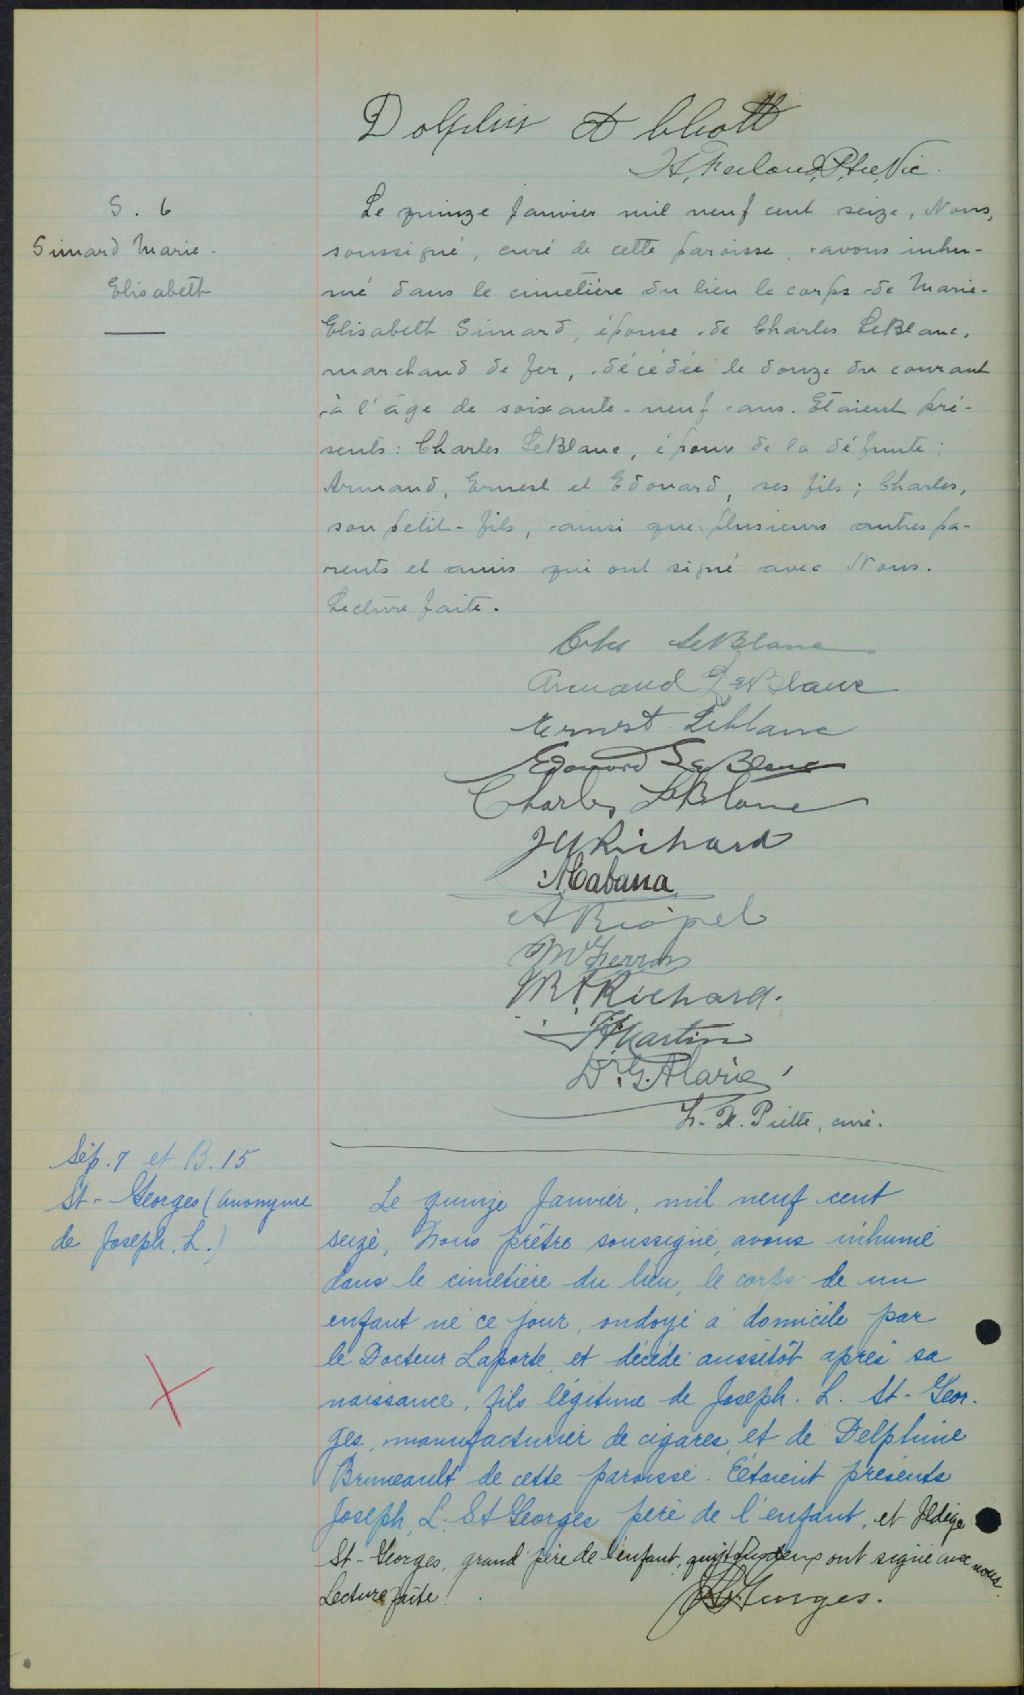 Dolphis Abbott
H. Ferland, Ptre, Vic.
S. 6
Simard Marie-
Elisabeth
Le quinze Janvier mil neuf cent seize, Nous,
soussigné, curé de cette paroisse, avons inhu-
mé dans le cimetière du lieu le corps de Marie-
Elisabeth Simard, épouse de Charles LeBlanc,
marchand de fer, décédée le douze du courant
à l'âge de soixante-neuf ans. Etaient pré-
sents: Charles LeBlanc, époux de la défunte;
Armand, Ernest et Edouard, ses fils; Charles,
son petit-fils, ainsi que plusieurs autres pa-
rents et amis qui ont signé avec Nous.
Lecture faite.
Chs LeBlanc
Armand LeBlanc
Ernest Leblanc
Edouard LeBlanc
Charles LeBlanc
Richard
A Riopel
Richard.
Martin
Dr. G. Alarie
Piette, curé.
Sép. 7 et B. 15
St-Georges (anonyme
de Joseph, L.)
Le quinze Janvier, mil neuf cent
seize, Nous prêtre soussigné, avons inhumé
dans le cimetière du lieu, le corps de un
enfant né ce jour, ondoyé à domicile par
le Docteur Laporte, et décédé aussitôt après sa
naissance, fils légitime de Joseph. L. St-Geor-
ges, manufacturier de cigares, et de Delphine
Bruneault de cette paroisse. Etaient présents
Joseph, L. St Georges père de l'enfant, et Ildége
St-Georges, grand père de l'enfant, qui tous deux ont signé avec nous.
Lecture faite.
St. Georges.